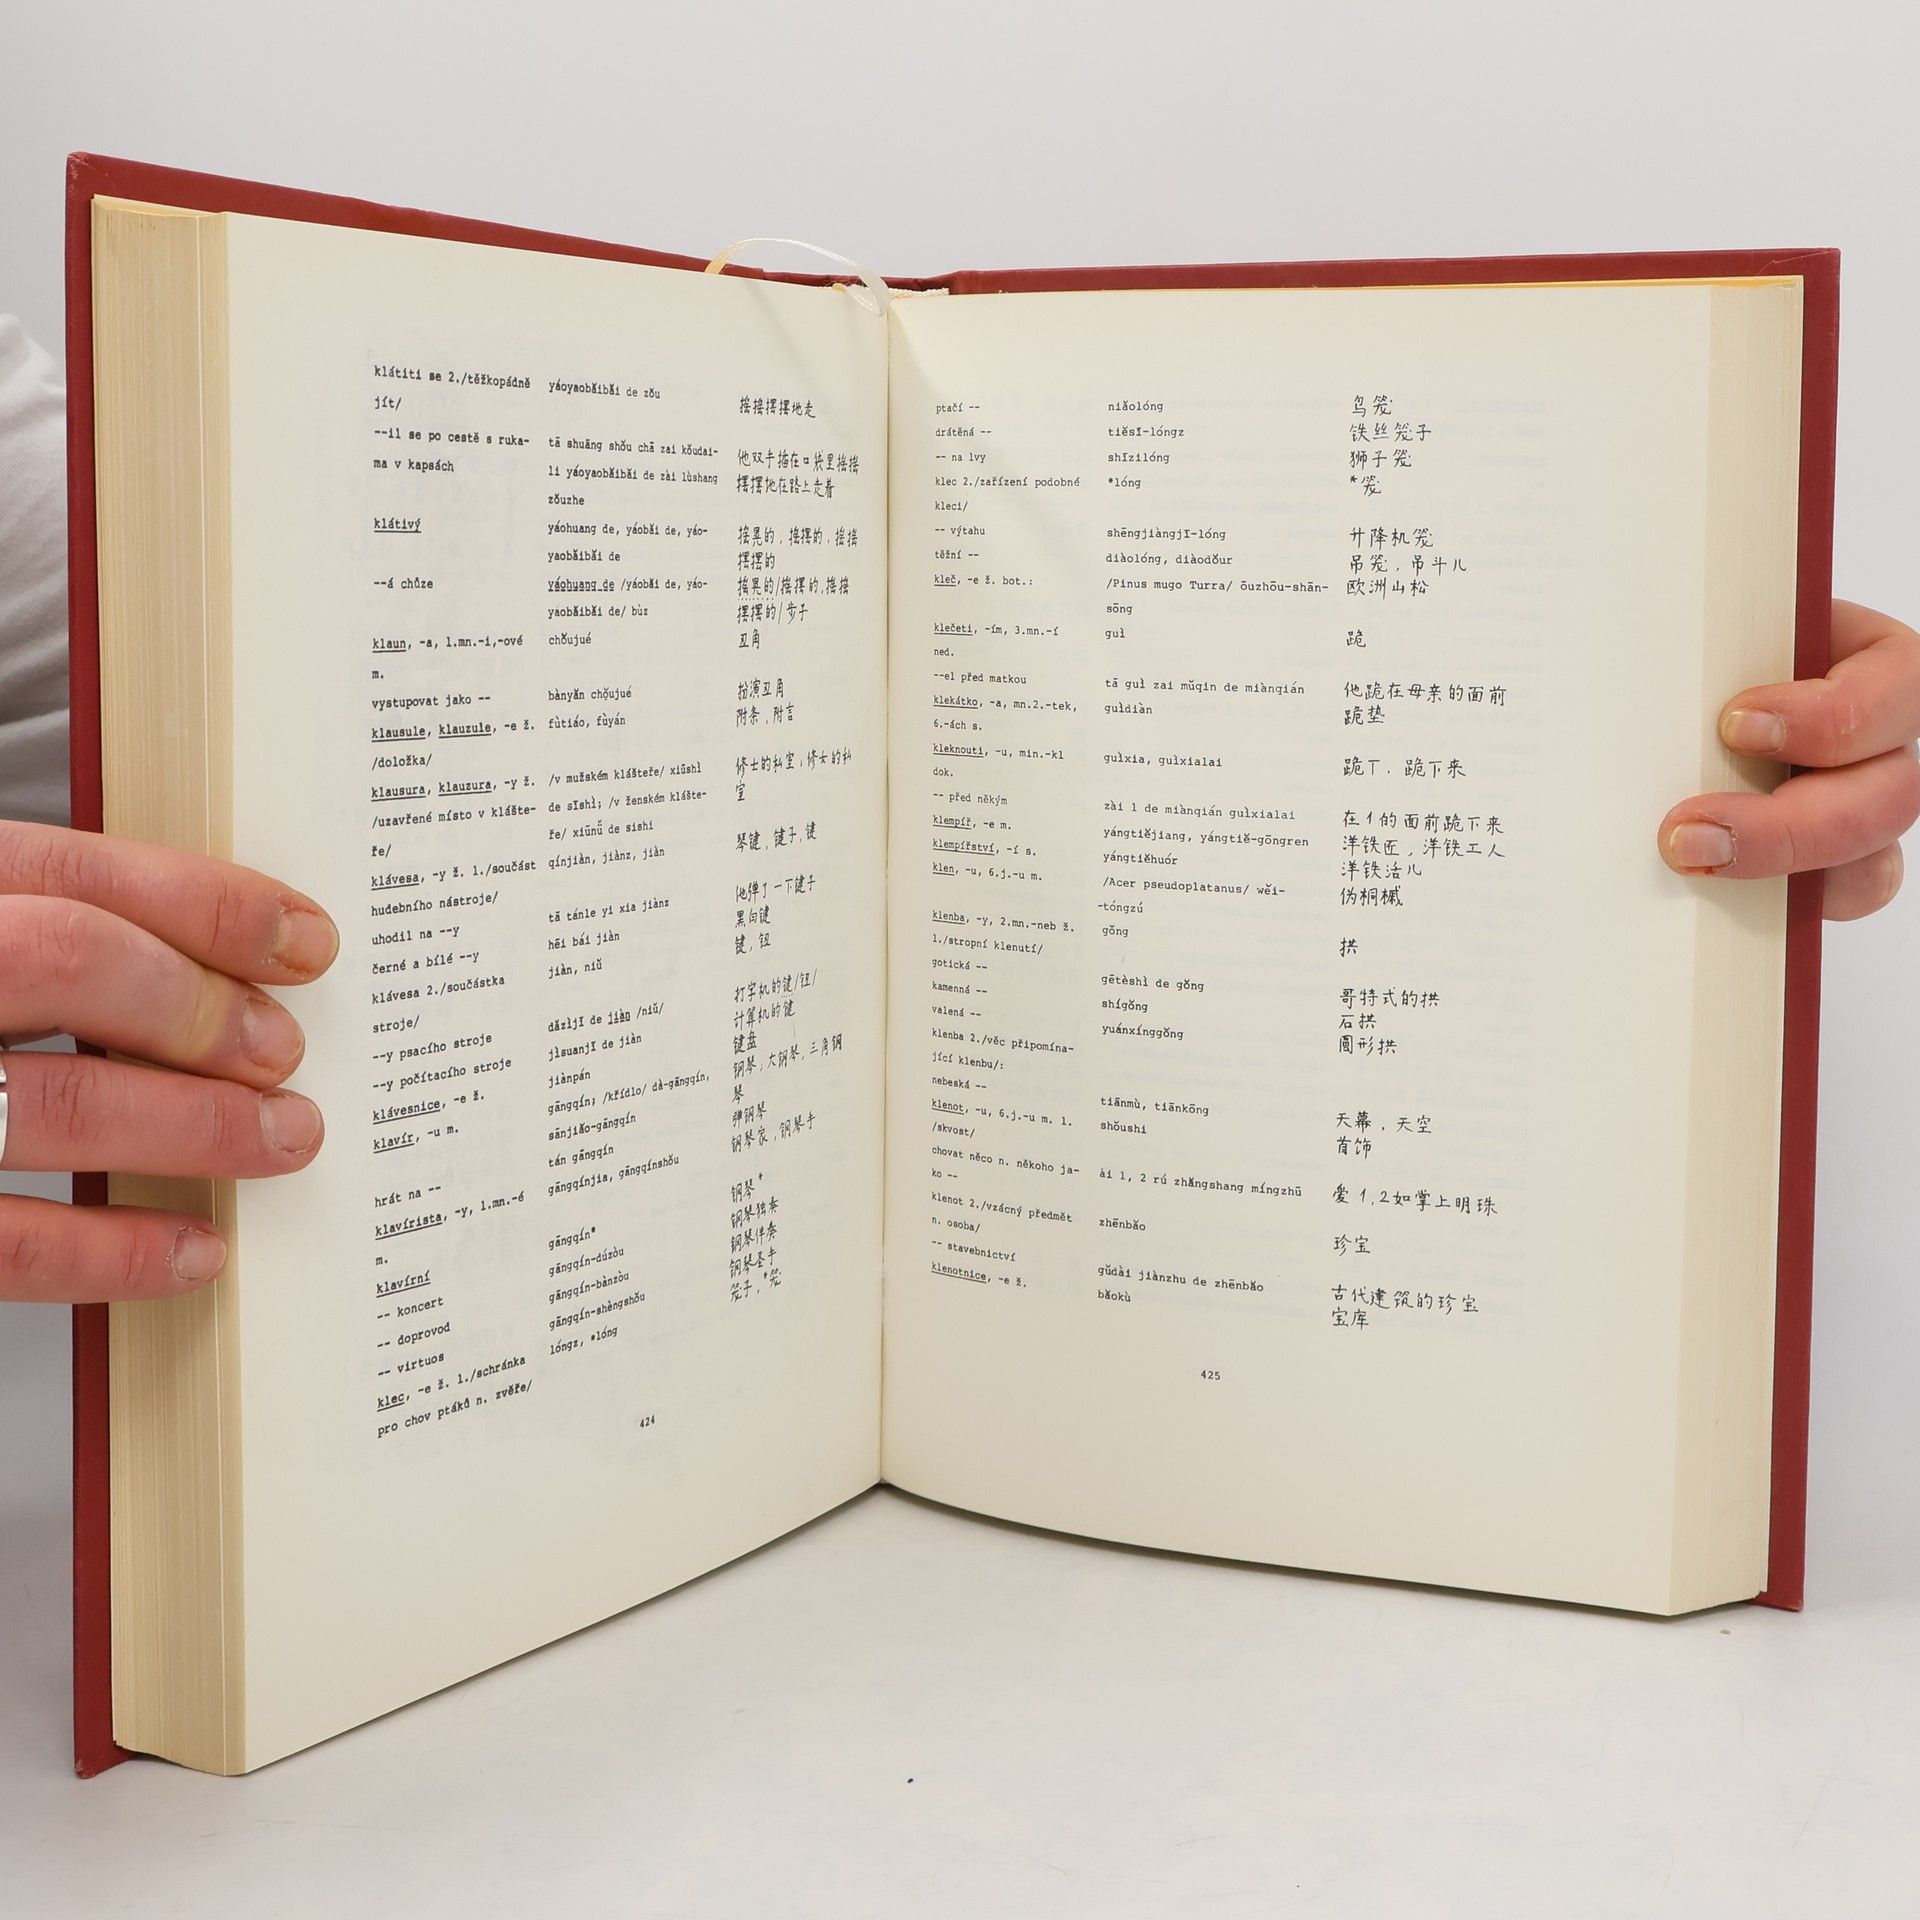 klátiti se 2./těžkopádně yáoyaobǎibǎi de zǒu 摇摇摆摆地走
jít/
--il se po cestě s ruka- tā shuāng shǒu chā zai kǒudai- 他双手插在口袋里摇摇
ma v kapsách li yáoyaobǎibǎi de zài lùshang 摆摆地在路上走着
zǒuzhe
klátivý yáohuang de, yáobǎi de, yáo- 摇晃的，摇摆的，摇摇
yaobǎibǎi de 摆摆的
--á chůze yáohuang de /yáobǎi de, yáo- 摇晃的/摇摆的,摇摇
yaobǎibǎi de/ bùz 摆摆的/步子
klaun, -a, 1.mn.-i,-ové chǒujué 丑角
m.
vystupovat jako -- bànyǎn chǒujué 扮演丑角
klausule, klauzule, -e ž. fùtiáo, fùyán 附条，附言
/doložka/
klausura, klauzura, -y ž. /v mužském klášteře/ xiūshì 修士的私室；修女的私
/uzavřené místo v klášte- de sīshì; /v ženském klášte- 室
ře/ ře/ xiūnǚ de sishi
klávesa, -y ž. 1./součást qínjiàn, jiànz, jiàn 琴键，键子,键
hudebního nástroje/
uhodil na --y tā tánle yi xia jiànz 他弹了一下键子
černé a bílé --y hēi bái jiàn 黑白键
klávesa 2./součástka jiàn, niǔ 键，钮
stroje/
--y psacího stroje dǎzìjī de jiàn /niǔ/ 打字机的键/钮/
--y počítacího stroje jìsuanjī de jiàn 计算机的键
klávesnice, -e ž. jiànpán 键盘
klavír, -u m. gāngqín; /křídlo/ dà-gāngqín, 钢琴，大钢琴，三角钢
sānjiǎo-gāngqín 琴
hrát na -- tán gāngqín 弹钢琴
klavírista, -y, 1.mn.-é gāngqínjia, gāngqínshǒu 钢琴家，钢琴手
m.
klavírní gāngqín* 钢琴*
-- koncert gāngqín-dúzòu 钢琴独奏
-- doprovod gāngqín-bànzòu 钢琴伴奏
-- virtuos gāngqín-shèngshǒu 钢琴圣手
klec, -e ž. 1./schránka lóngz, *lóng 笼子，*笼
pro chov ptáků n. zvěře/
424
ptačí -- niǎolóng 鸟笼
drátěná -- tiěsī-lóngz 铁丝笼子
-- na lvy shīzilóng 狮子笼
klec 2./zařízení podobné *lóng *笼
kleci/
-- výtahu shēngjiàngjī-lóng 升降机笼
těžní -- diàolóng, diàodǒur 吊笼，吊斗儿
kleč, -e ž. bot.: /Pinus mugo Turra/ ōuzhōu-shān- 欧洲山松
sōng
klečeti, -ím, 3.mn.-í guì 跪
ned.
--el před matkou tā guì zai mǔqin de miànqián 他跪在母亲的面前
klekátko, -a, mn.2.-tek, guìdiàn 跪垫
6.-ách s.
kleknouti, -u, min.-kl guìxia, guìxialai 跪下，跪下来
dok.
-- před někým zài 1 de miànqián guìxialai 在1的面前跪下来
klempíř, -e m. yángtiějiang, yángtiě-gōngren 洋铁匠，洋铁工人
klempířství, -í s. yángtiěhuór 洋铁活儿
klen, -u, 6.j.-u m. /Acer pseudoplatanus/ wěi- 伪桐槭
-tóngzú
klenba, -y, 2.mn.-neb ž. gǒng 拱
1./stropní klenutí/
gotická -- gētèshì de gǒng 哥特式的拱
kamenná -- shígǒng 石拱
valená -- yuánxínggǒng 圆形拱
klenba 2./věc připomína-
jící klenbu/:
nebeská -- tiānmù, tiānkōng 天幕，天空
klenot, -u, 6.j.-u m. 1. shǒushi 首饰
/skvost/
chovat něco n. někoho ja- ài 1, 2 rú zhǎngshang míngzhū 爱1,2如掌上明珠
ko --
klenot 2./vzácný předmět zhēnbǎo 珍宝
n. osoba/
-- stavebnictví gǔdài jiànzhu de zhēnbǎo 古代建筑的珍宝
klenotnice, -e ž. bǎokù 宝库
425